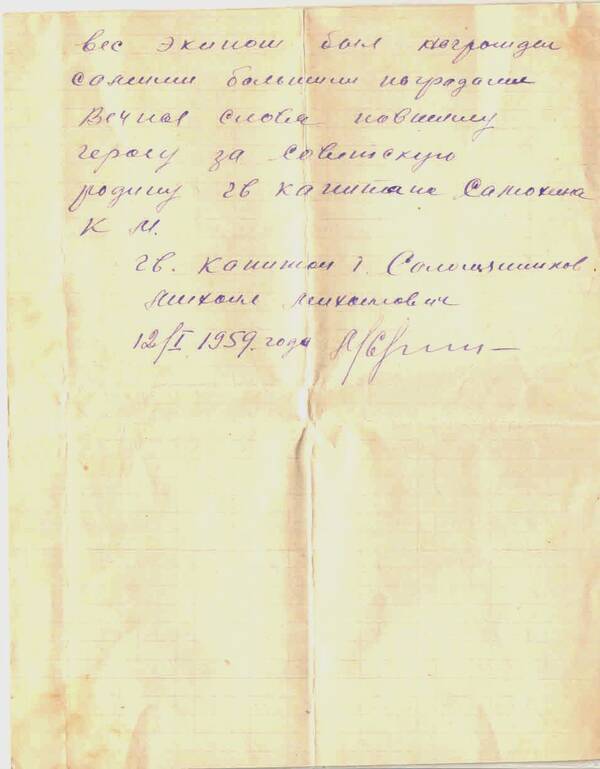 вес экипаж был награжден
самыми большими наградами
Вечная слова павшему
герою за Советскую
родину гв капитана Самохина
К М.
гв. капитан
Михаил Михайлович
12/I 1959. года